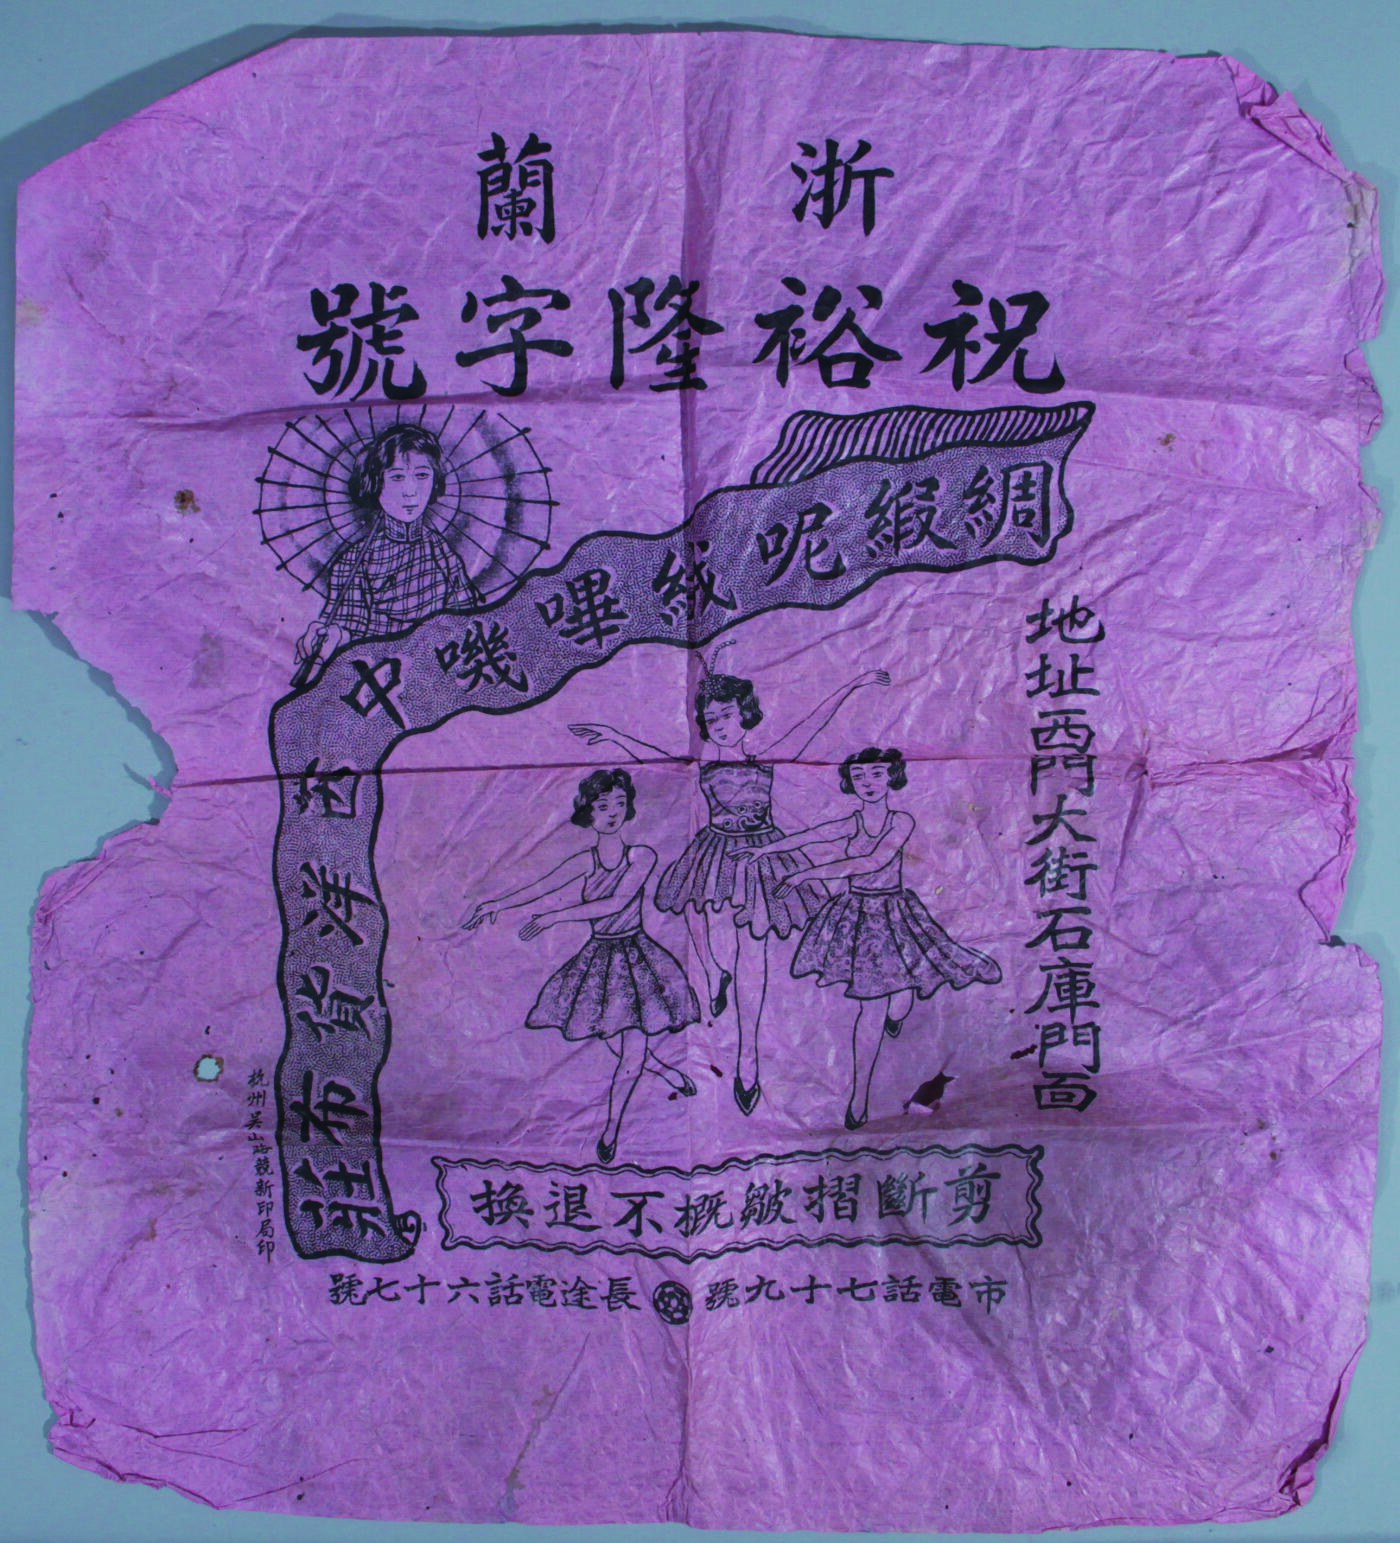 浙蘭
祝裕隆字號
綢緞呢絨嗶嘰中西洋貨布莊
地址西門大街石庫門面
剪斷摺皺概不退換
市電話七十九號
長途電話六十七號
杭州吴山路競新印局印